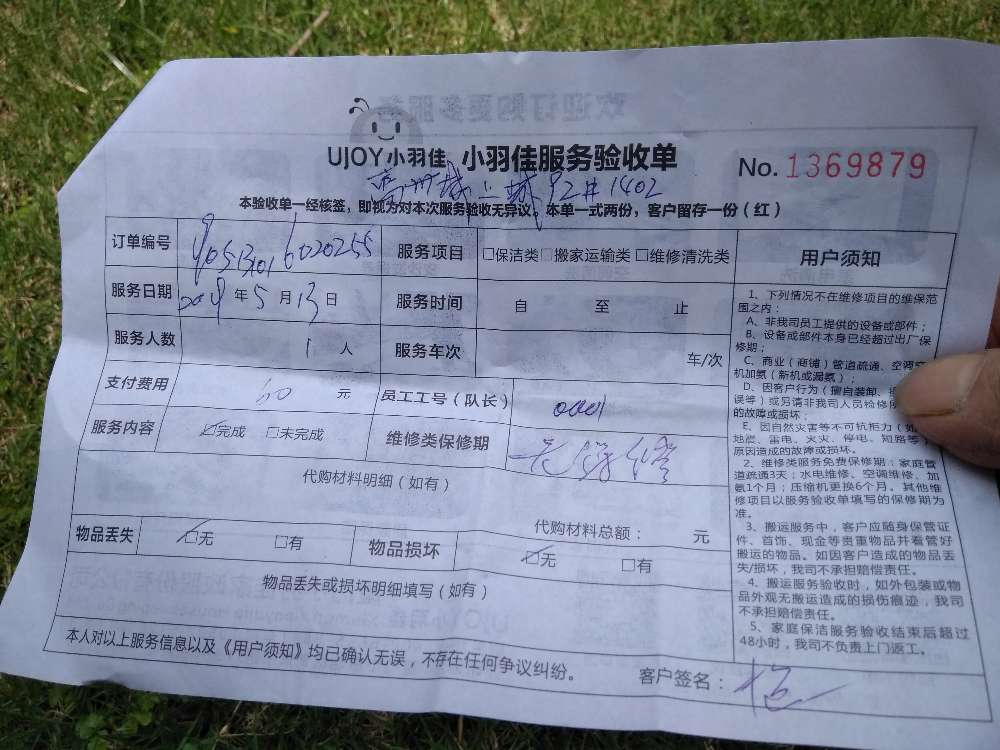 UJOY小羽佳 小羽佳服务验收单
No. 1369879
上城 92# 1402
本验收单一经核签，即视为对本次服务验收无异议。本单一式两份，客户留存一份（红）
订单编号
服务项目 □保洁类□搬家运输类 □维修清洗类
服务日期 年 5 月 13 日
服务时间 自 至 止
服务人数 1 人
服务车次 车/次
支付费用 元
员工工号（队长）
服务内容 ☑完成 □未完成
维修类保修期
代购材料明细（如有）
代购材料总额： 元
物品丢失 ☑无 □有
物品损坏 ☑无 □有
物品丢失或损坏明细填写（如有）
本人对以上服务信息以及《用户须知》均已确认无误，不存在任何争议纠纷。
客户签名：
用户须知
1、下列情况不在维修项目的维保范
围之内：
A、非我司员工提供的设备或部件；
B、设备或部件本身已经超过出厂保
修期；
C、商业（商铺）管道疏通、空调
机加氨（新机或漏氨）；
D、因客户行为（擅自装卸、
误等）或另请非我司人员检修
的故障或损坏；
E、因自然灾害等不可抗拒力（如
地震、雷电、火灾、停电、短路等
原因造成的故障或损坏。
2、维修类服务免费保修期：家庭管
道疏通3天；水电维修、空调维修、加
氨1个月；压缩机更换6个月。其他维
修项目以服务验收单填写的保修期为
准。
3、搬运服务中，客户应随身保管证
件、首饰、现金等贵重物品并看管好
搬运的物品。如因客户造成的物品丢
失/损坏，我司不承担赔偿责任。
4、搬运服务验收时，如外包装或物
品外观无搬运造成的损伤痕迹，我司
不承担赔偿责任。
5、家庭保洁服务验收结束后超过
48小时，我司不负责上门返工。